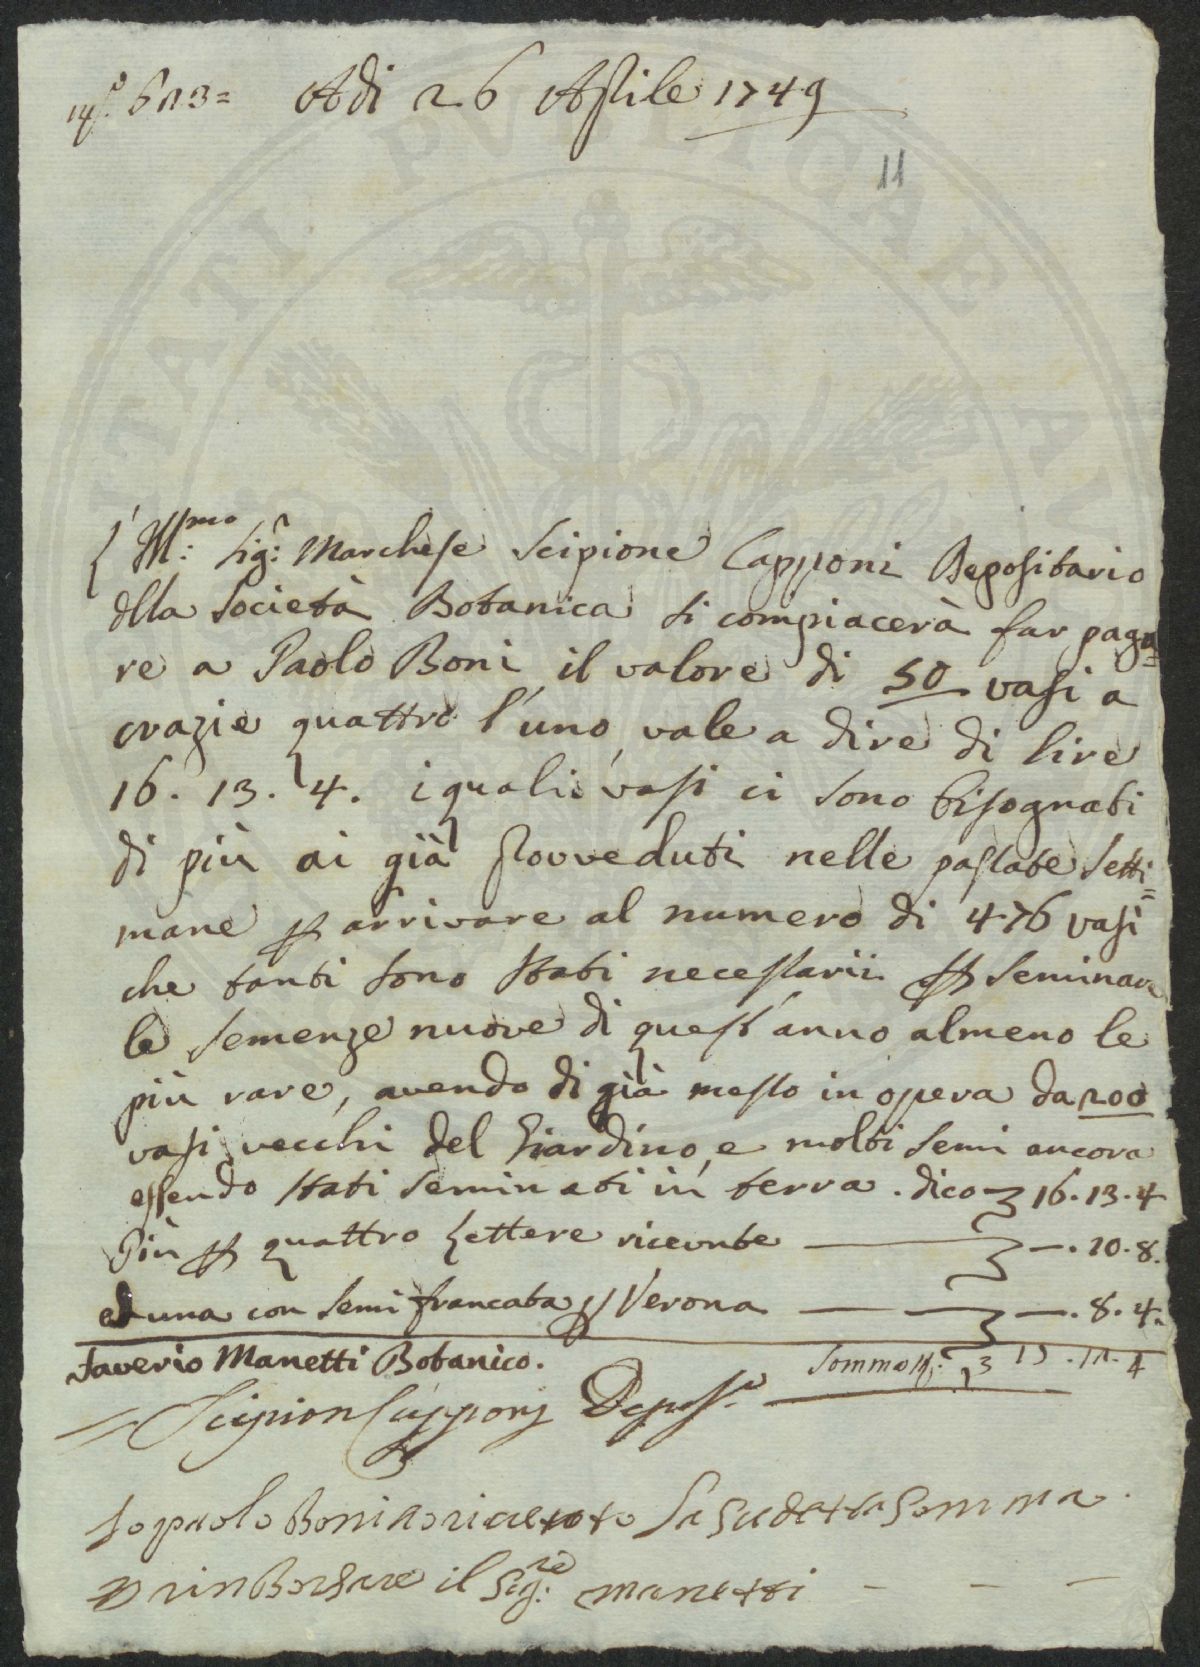 Adi 26 Aprile 1749
11
L'Ill:mo Sig:r Marchese Scipione Capponi Depositario
dlla Società Botanica si compiacerà far paga=
re a Paolo Boni il valore di 50 vasi a
crazie quattro l'uno, vale a dire di lire
16. 13. 4. i quali vasi ci sono bisognati
di più ai già provveduti nelle passate setti=
mane p arrivare al numero di 476 vasi
che tanti sono stati necessarii p seminare
le semenze nuove di quest'anno almeno le
più rare, avendo di già messo in opera da 200
vasi vecchi del Giardino, e molti semi ancora
essendo stati seminati in terra. dico 16. 13. 4
Più p quattro Lettere ricevute —. 10. 8.
ed una con semi francata p Verona —. 8. 4.
Saverio Manetti Botanico.
Somma
Scipion Capponj Depos:o
Io paolo Boni o riceuto la sudetta somma
p rinborsare il Sig:re manetti